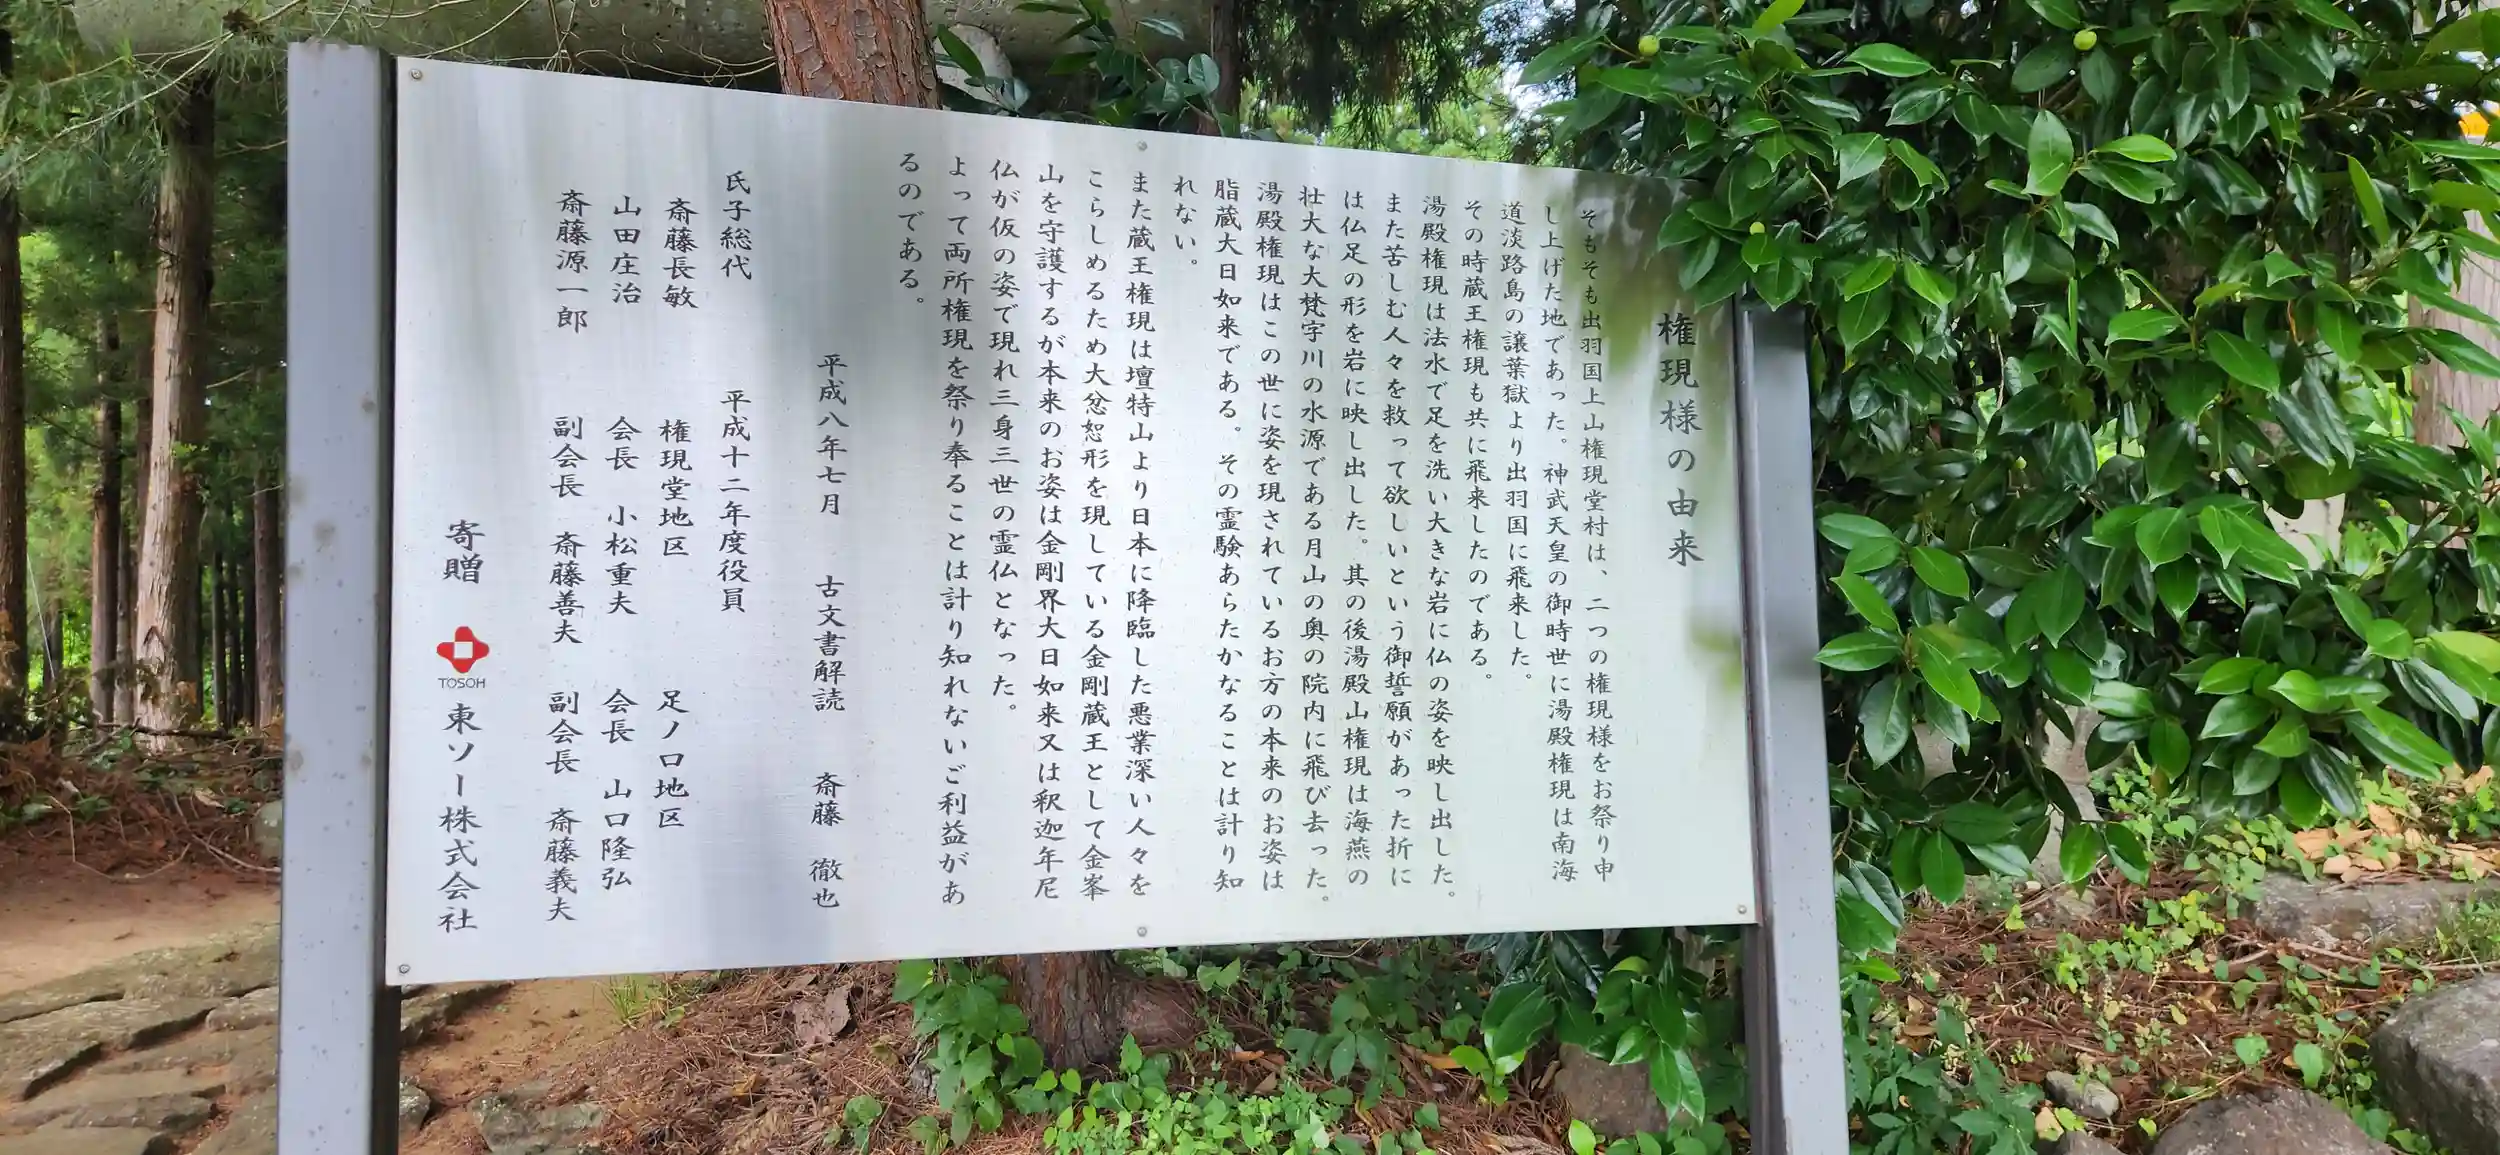 権現様の由来
そもそも出羽国上山権現堂村は、二つの権現様をお祭り申
し上げた地であった。神武天皇の御時世に湯殿権現は南海
道淡路島の譲葉獄より出羽国に飛来した。
その時蔵王権現も共に飛来したのである。
湯殿権現は法水で足を洗い大きな岩に仏の姿を映し出した。
また苦しむ人々を救って欲しいという御誓願があった折に
は仏足の形を岩に映し出した。其の後湯殿山権現は海燕の
壮大な大梵字川の水源である月山の奥の院内に飛び去った。
湯殿権現はこの世に姿を現されているお方の本来のお姿は
脂蔵大日如来である。その霊験あらたかなることは計り知
れない。
また蔵王権現は壇特山より日本に降臨した悪業深い人々を
こらしめるため大忿恕形を現している金剛蔵王として金峯
山を守護するが本来のお姿は金剛界大日如来又は釈迦年尼
仏が仮の姿で現れ三身三世の霊仏となった。
よって両所権現を祭り奉ることは計り知れないご利益があ
るのである。
平成八年七月 古文書解読 斎藤 徹也
氏子総代 平成十二年度役員
斎藤長敏 権現堂地区 足ノ口地区
山田庄治 会長 小松重夫 会長 山口隆弘
斎藤源一郎 副会長 斎藤善夫 副会長 斎藤義夫
寄贈 TOSOH 東ソー株式会社